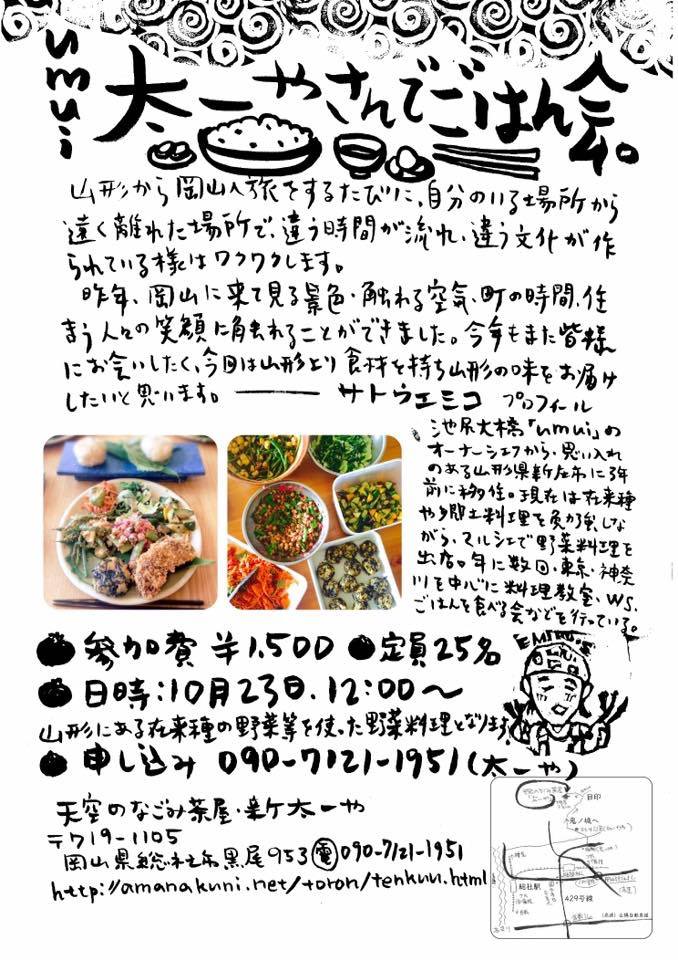 umui
太一やさんでごはん会。
山形から岡山へ旅をするたびに、自分のいる場所から
遠く離れた場所で、違う時間が流れ、違う文化が作
られている様はワクワクします。
昨年、岡山に来て見る景色・触れる空気、町の時間、住
まう人々の笑顔に触れることができました。今年もまた皆様
にお会いしたく、今回は山形より食材を持ち山形の味をお届け
したいと思います。 ―― サトウエミコ プロフィール
池尻大橋「umui」の
オーナーシェフから、思い入れ
のある山形県新庄市に3年
前に移住。現在は在来種
や郷土料理を勉強しな
がら、マルシェで野菜料理を
出店。年に数回・東京・神奈
川を中心に料理教室、WS、
ごはんを食べる会などを行っている。
参加費 ¥1,500 定員25名
日時:10月23日.12:00〜
山形にある在来種の野菜等を使った野菜料理となります。
EMIKO'S
申し込み 090-7121-1951(太一や)
天空のなごみ茶屋・新ケ太一や
〒719-1105
岡山県総社市黒尾953 電090-7121-1951
http://amanakuni.net/toron/tenkuu.html
目印
鬼ノ城へ
総社駅
429号線